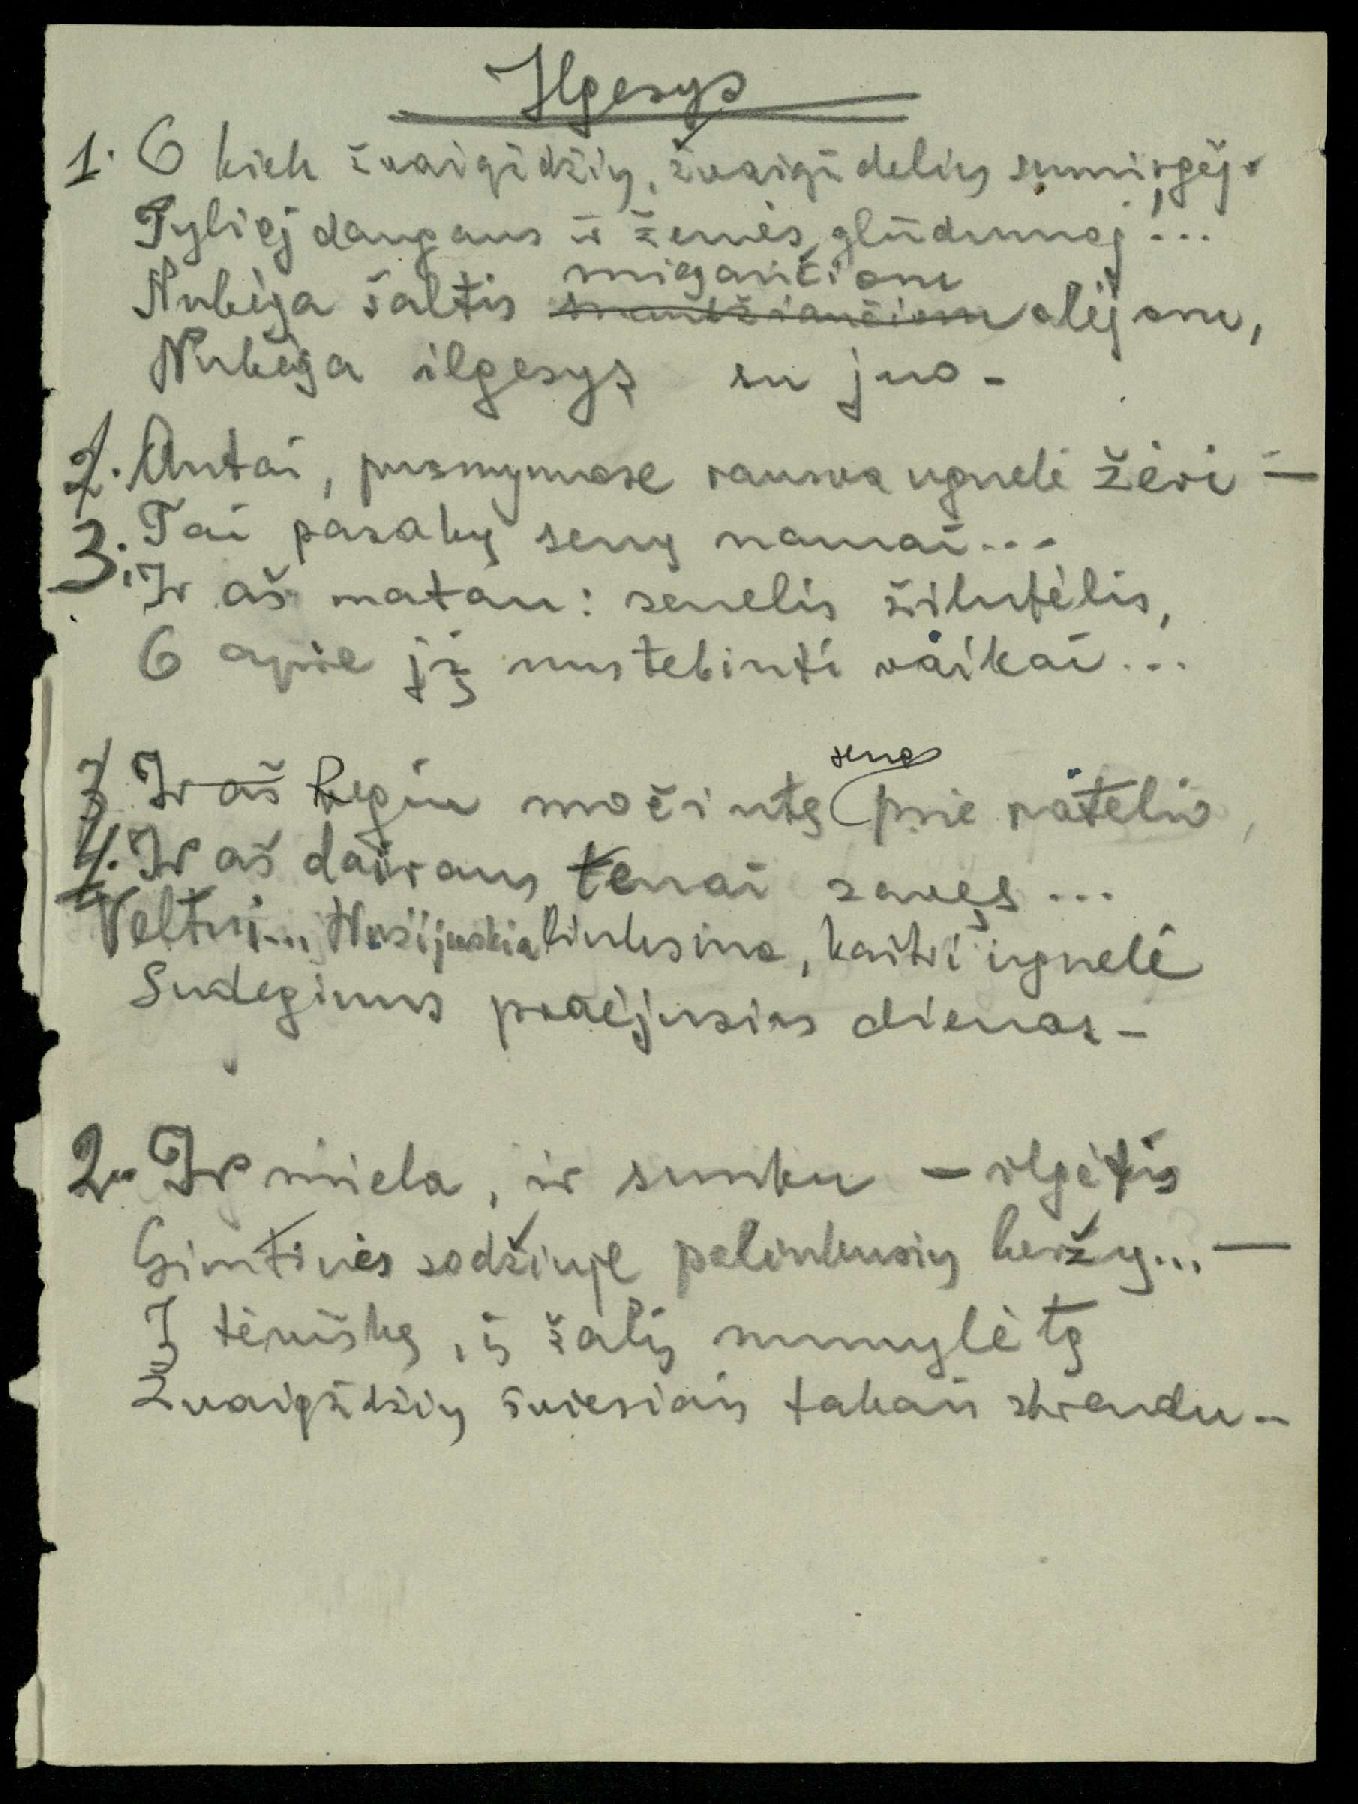 Ilgesys
1. O kiek žvaigždžių, žvaigždelių sumirgėjo
Tyliąj dangaus ir žemės glūdumoj...
miegančiom
Nubėga šaltis alėjom,
Nubėga ilgesys su juo –
2. Antai, pusnynuose rausva ugnelė žėri –
3. Tai pasakų senų namai...
Ir aš matau: senelis žilutėlis,
O apie jį nustebinti vaikai...
seną
3. Ir aš Regiu močiutę prie ratelio,
4. Ir aš dairaus tenai savęs...
Veltui... Nusijuokia linksma, kaitri ugnelė
Sudeginus praėjusias dienas –
2. Ir miela, ir sunku – ilgėtis
Gimtinės sodžiuje palinkusių beržų... –
Į tėviškę, į šalį numylėtą
Žvaigždžių šviesiais takais skrendu –